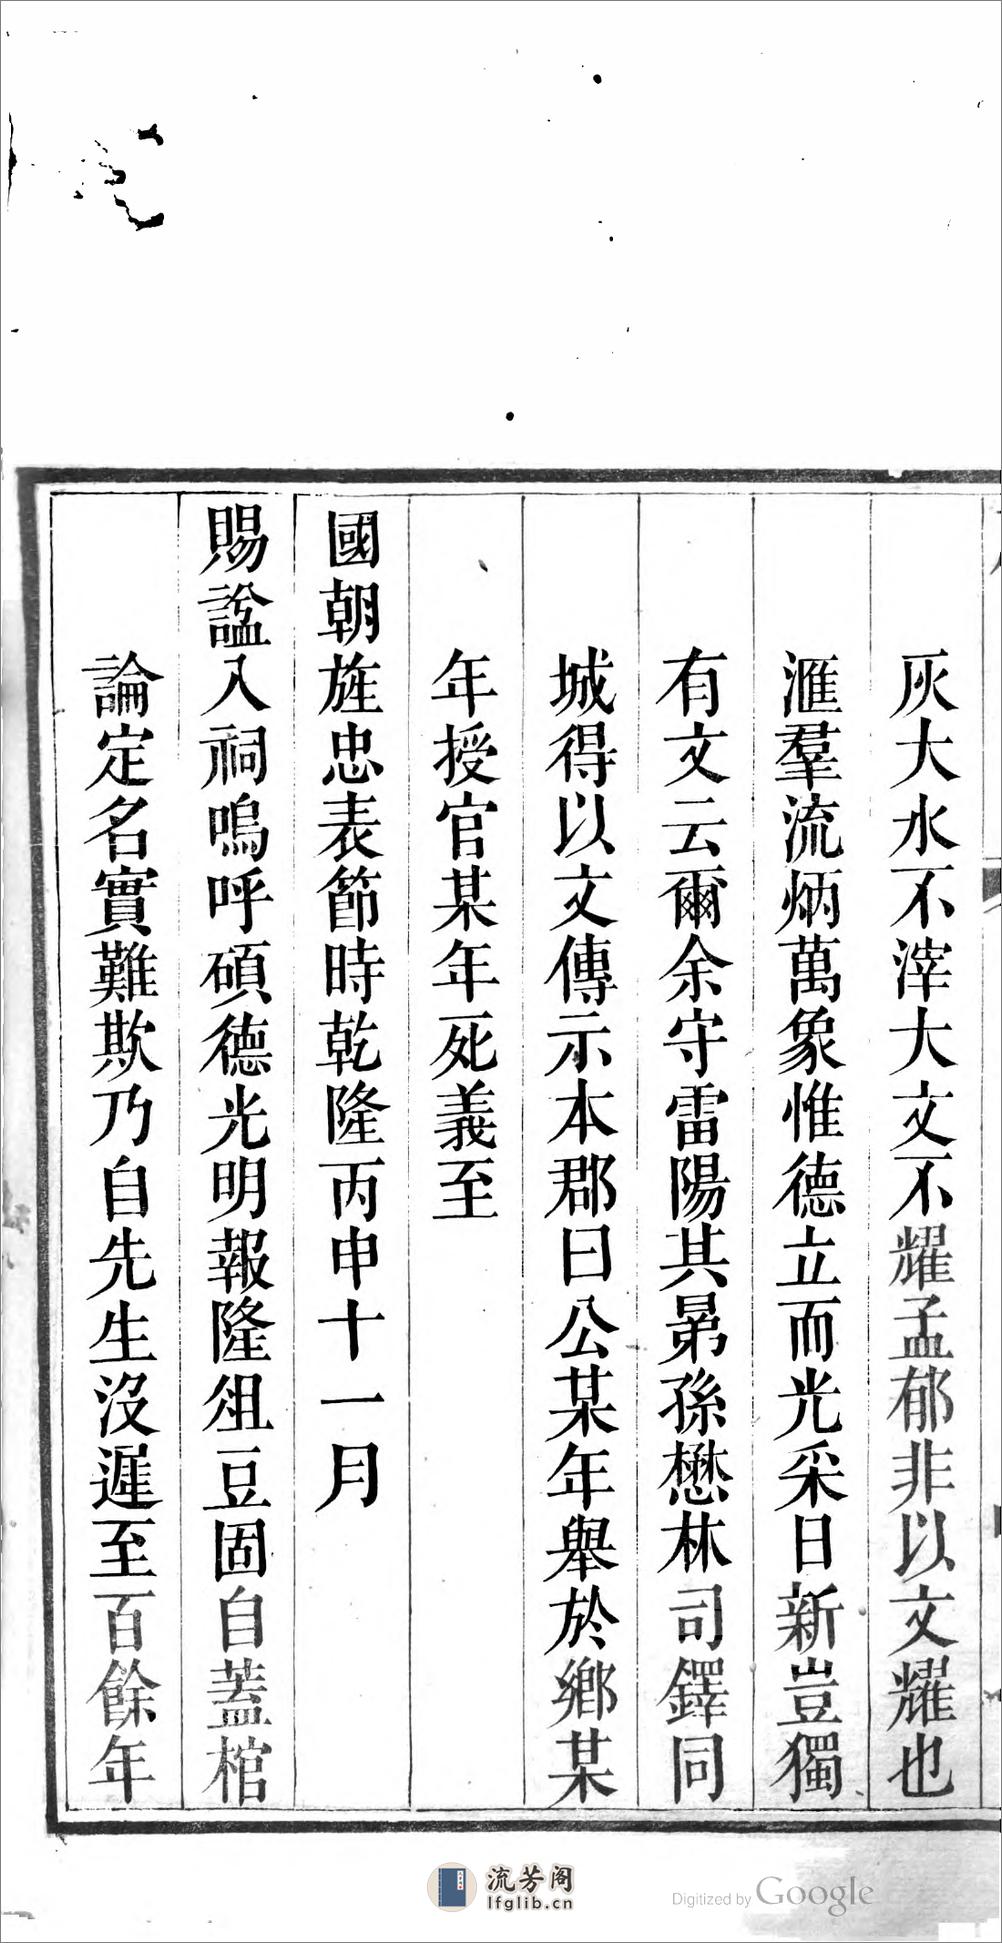 灰大水不滓大文不耀孟郁非以文耀也
滙羣流炳萬象惟德立而光采日新豈獨
有文云爾余守雷陽其曻孫懋林司鐸同
城得以文傳示本郡曰公某年舉於鄉某
年授官某年死義至
國朝旌忠表節時乾隆丙申十一月
賜諡入祠嗚呼碩德光明報隆俎豆固自蓋棺
論定名實難欺乃自先生沒遲至百餘年
流芳阁
lfglib.cn
Digitized by Google